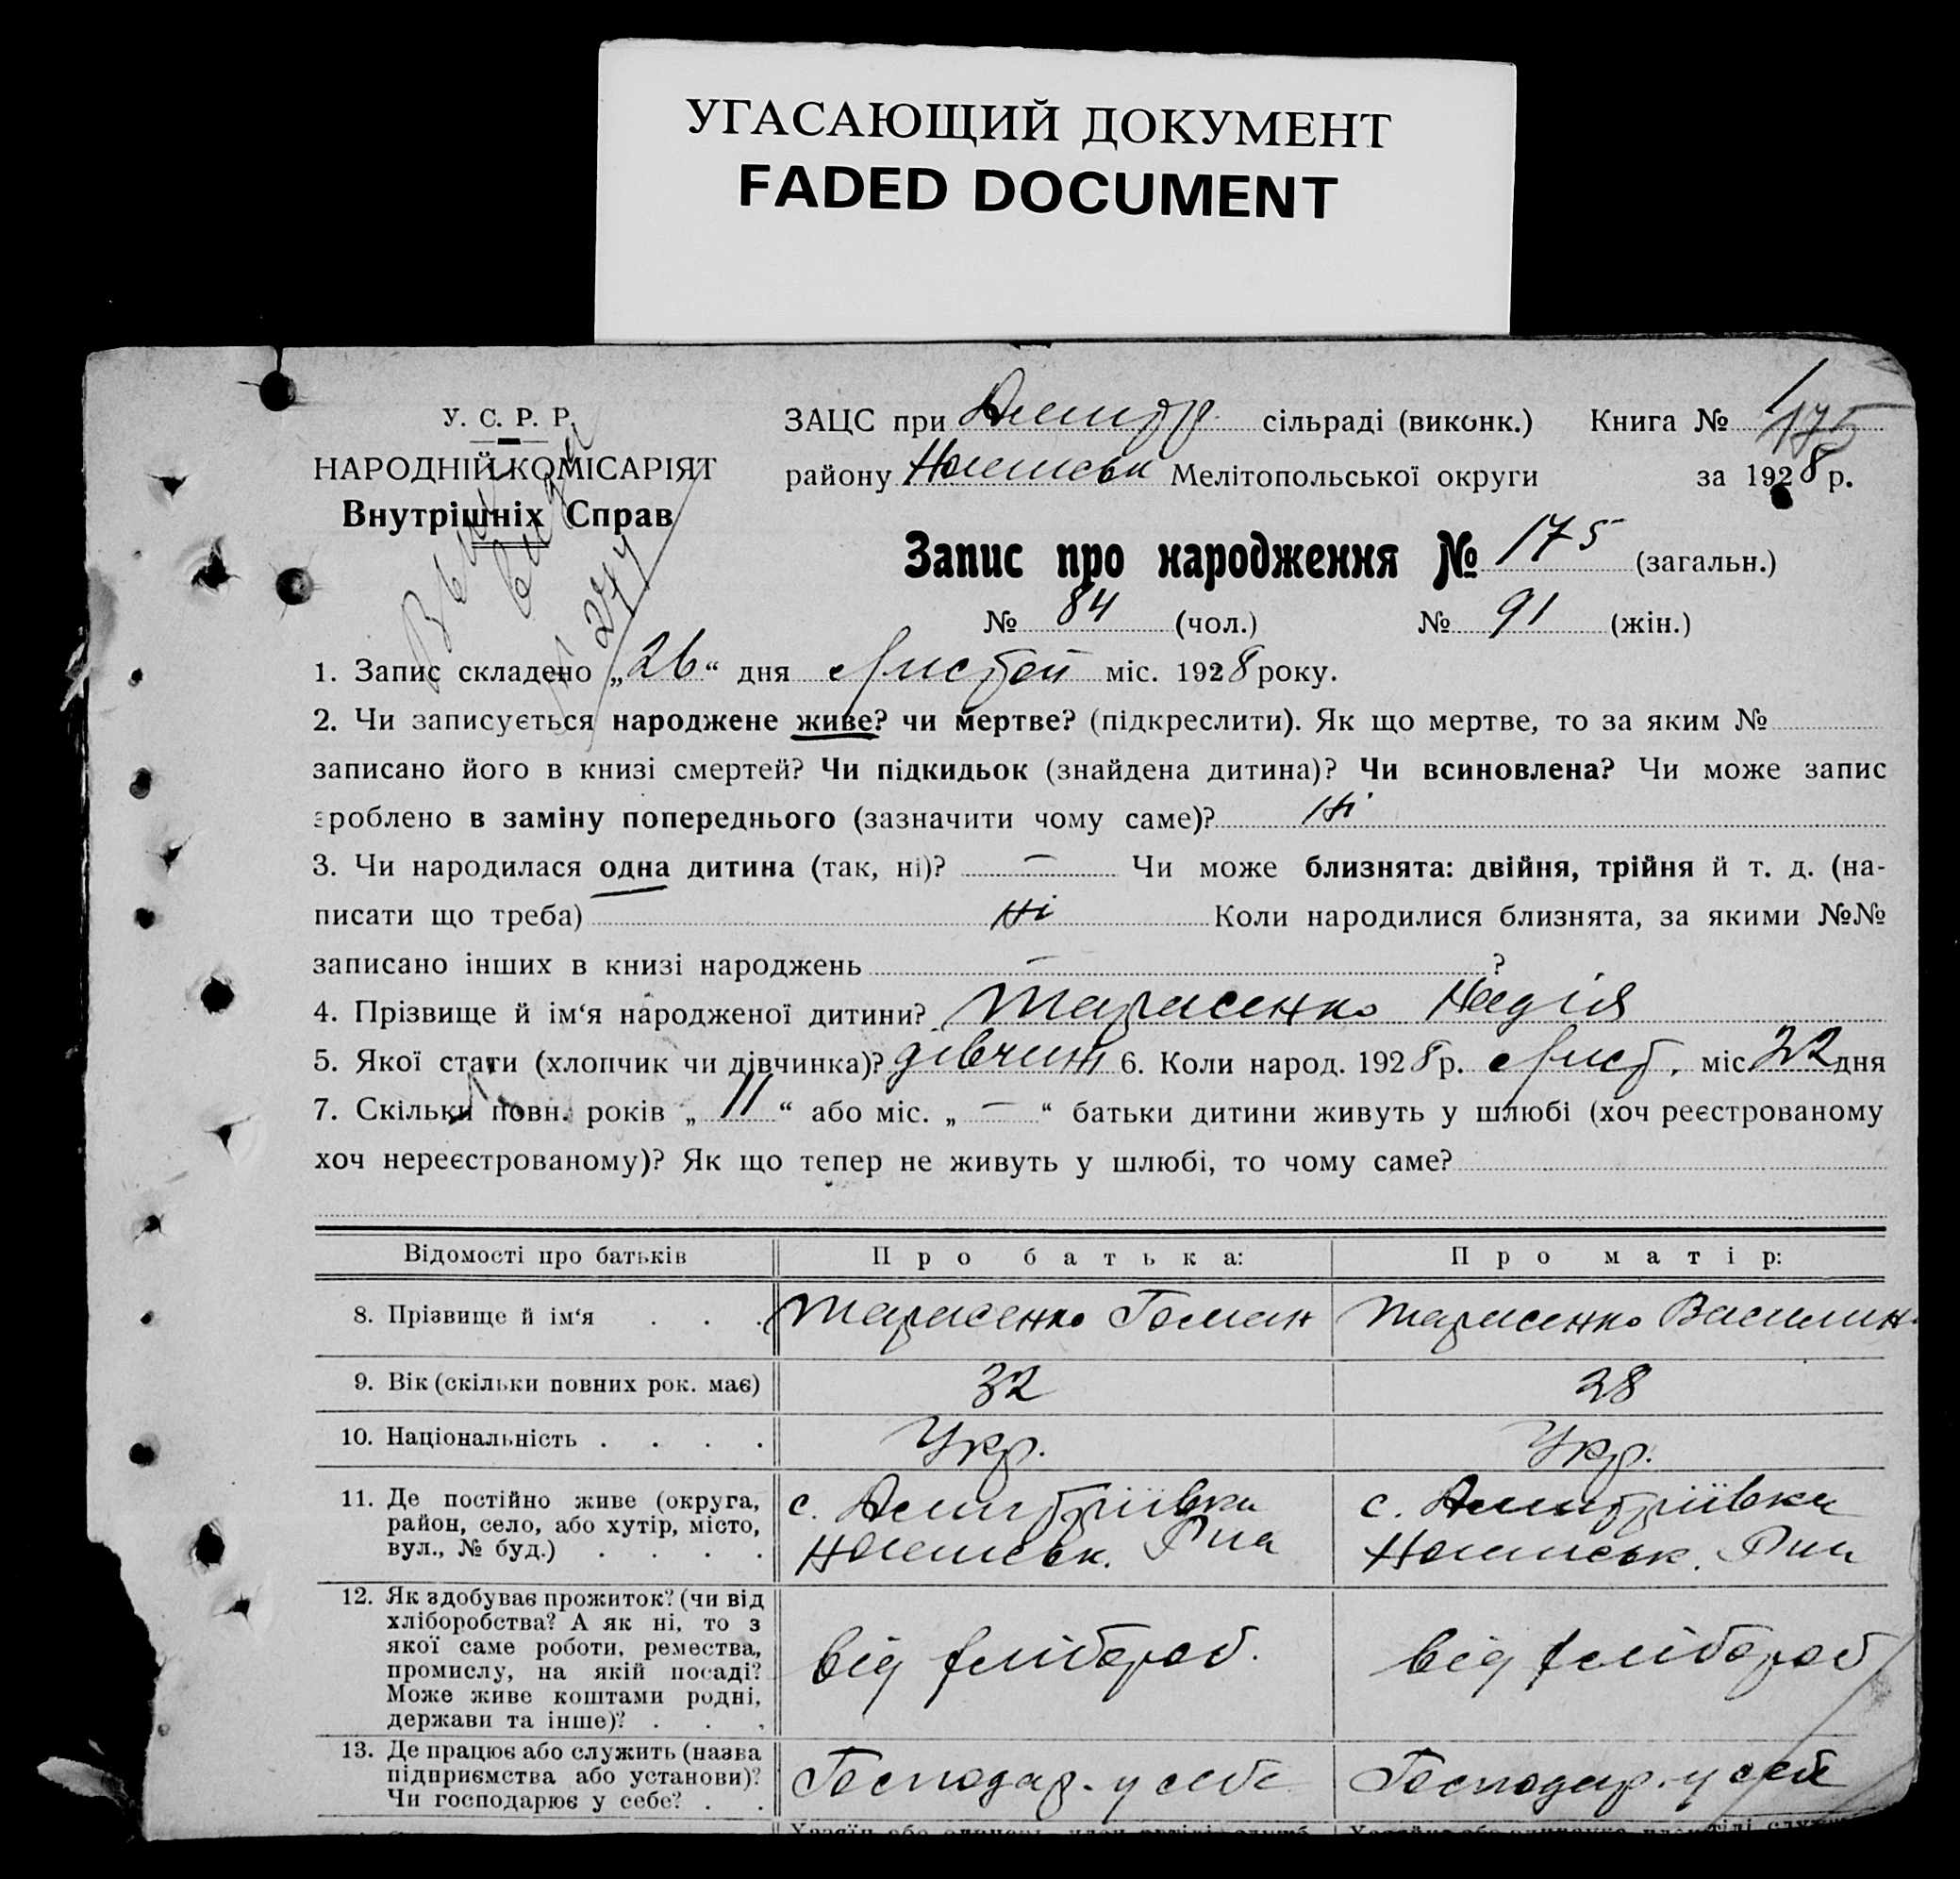 УГАСАЮЩИЙ ДОКУМЕНТ
FADED DOCUMENT
У. С. Р. Р.
НАРОДНІЙ КОМІСАРІЯТ
Внутрішніх Справ
ЗАЦС при Дмитр. сільраді (виконк.) Книга № 1
175
району Мелітопольської округи за 1928 р.
Запис про народження № 175 (загальн.)
№ 84 (чол.) № 91 (жін.)
1. Запис складено „26“ дня Листоп міс. 1928 року.
2. Чи записується народжене живе? чи мертве? (підкреслити). Як що мертве, то за яким №
записано його в книзі смертей? Чи підкидьок (знайдена дитина)? Чи всиновлена? Чи може запис
зроблено в заміну попереднього (зазначити чому саме)? Ні
3. Чи народилася одна дитина (так, ні)? — Чи може близнята: двійня, трійня й т. д. (на-
писати що треба) Ні Коли народилися близнята, за якими №№
записано інших в книзі народжень — ?
4. Прізвище й ім‘я народженої дитини? Тарасенко Надія
5. Якої стати (хлопчик чи дівчинка)? дівчин 6. Коли народ. 1928 р. Лист. міс. 22 дня
7. Скільки повн. років „ 11 “ або міс. „ — “ батьки дитини живуть у шлюбі (хоч реєстрованому
хоч нереєстрованому)? Як що тепер не живуть у шлюбі, то чому саме?
Відомості про батьків Про батька: Про матір:
8. Прізвище й ім‘я . . . Тарасенко Роман Тарасенко Василин
9. Вік (скільки повних рок. має) 32 28
10. Національність . . . . Укр. Укр.
11. Де постійно живе (округа, с. Дмитріївка с. Дмитріївка
район, село, або хутір, місто, Р-на Р-на
вул., № буд.) . . . .
12. Як здобуває прожиток? (чи від
хліборобства? А як ні, то з
якої саме роботи, ремества, від хлібороб. від хлібороб
промислу, на якій посаді?
Може живе коштами родні,
держави та інше)? . . .
13. Де працює або служить (назва
підприємства або установи)? Господар. у себе Господар. у себе
Чи господарює у себе? . .